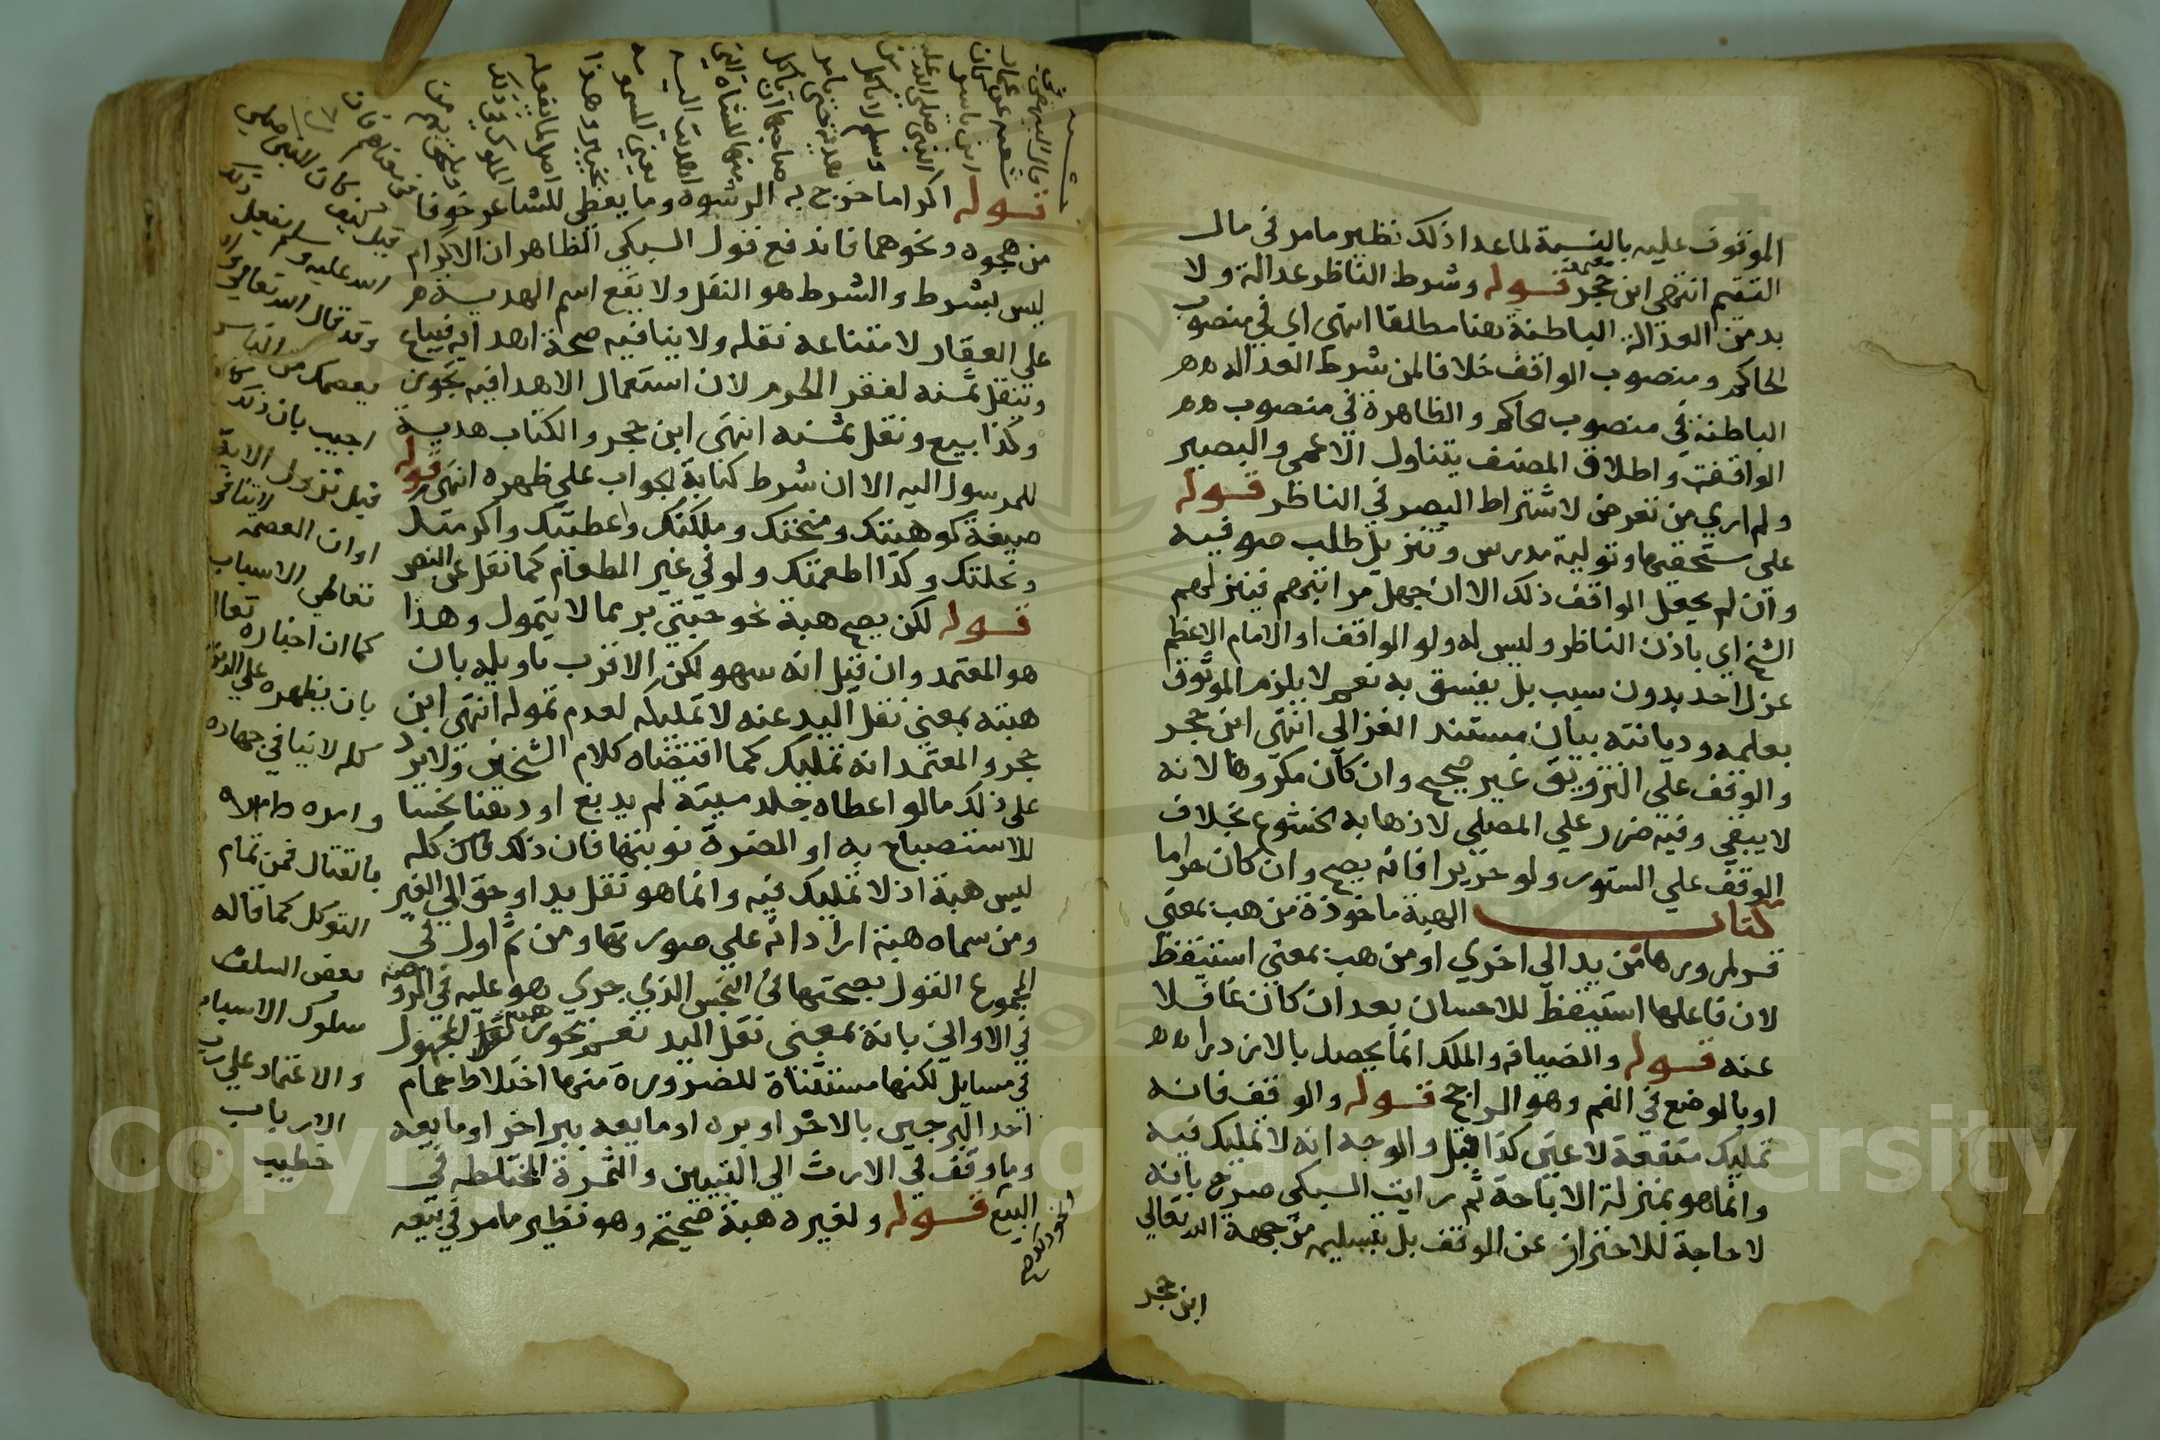 الموقوف عليه بالنسبة لما عدا ذلك نظير ما مر في مال
اليتيم انتهى ابن حجر قوله وشرط الناظر عدالة ولا
بد من العدالة الباطنة هنا مطلقا انتهى اي في منصوب
الحاكم ومنصوب الواقف خلافا لمن شرط العدالة
الباطنة في منصوب الحاكم والظاهرة في منصوب
الواقف واطلاق المصنف يتناول الاعمى والبصير
ولم اري من تعرض لاشتراط البصر في الناظر قوله
على مستحقيها وتولية مدرس وتنزيل طلب صوفيه
وان لم يجعل الواقف ذلك الا ان جهل مراتبهم فينزلهم
الشيخ اي باذن الناظر وليس له ولو الواقف او الامام الاعظم
عزل احد بدون سبب بل يفسق به نعم لا يلزم الموثوق
بعلمه وديانته بيان مستند الغزالي انتهى ابن حجر
والوقف على التزويق غير صحيح وان كان مكروها لانه
لا يبقى وفيه ضرر علي المصلي لاذهابه الخشوع بخلاف
الوقف علي الستور ولو حريرا فانه يصح وان كان حراما
كتاب الهبة ماخوذة من هب بمعنى
مر لمرورها من يد الى اخرى او من هب بمعنى استيقظ
لان فاعلها استيقظ للاحسان بعد ان كان غافلا
عنه قوله والضيافه والملك انما يحصل بالازدراد
او بالوضع في الفم وهو الراجح قوله والوقف فانه
تمليك منفعة لا عين كذا قيل والوجه انه لا تمليك فيه
وانما هو بمنزلة الاباحة ثم رايت السبكي صرح بانه
لا حاجة للاحتراز عن الوقف بل تسليمه من جهة الله تعالى
ابن حجر
قوله اكراما خرج به الرشوه وما يعطى للشاعر خوفا
من هجوه ونحوهما فاندفع قول السبكي الظاهر ان الاكرام
ليس بشرط والشرط هو النقل ولا يقع اسم الهدية
على العقار لامتناعه نقله ولا ينافيه صحة اهدايه فيباع
وينقل ثمنه لفقر الحرم لان استعمال الاهدا فيه تجوز
وكذا بيع ونقل ثمنه انتهى ابن حجر والكتاب هدية
للمرسول اليه الا ان شرط كتابة الجواب على ظهره انتهى قوله
صيغة كوهبتك ومنحتك وملكتك واعطيتك واكرمتك
ونحلتك وكذا اطعمتك ولو في غير الطعام كما نقل عن النص
قوله لكن يصح هبة نحو حبتي بر مما لا يتمول وهذا
هو المعتمد وان قيل انه سهو لكن الاقرب تاويله بان
هبته بمعنى نقل اليد عنه لا تمليكه لعدم تموله انتهى ابن
حجر والمعتمد انه تمليك كما اقتضاه كلام الشيخين ولا يرد
على ذلك ما لو اعطاه جلد ميتة لم يدبغ او دهنا نجسا
للاستصباح به او الضرة نوبتها فان ذلك كله
ليس هبة اذ لا تمليك فيه وانما هو نقل يد او حق الي الغير
ومن سماه هبة اراد انه علي صورتها ومن ثم اول في
المجموع القول بصحتها في النجس الذي جرى هو عليه في الروضة
في الاواني بانه بمعنى نقل اليد نعم نحو هبة المجهول
في مسايل لكنها مستثناة للضرورة منها اختلاط حمام
احد البرجين بالاخر او بره او مايعه ببر اخر او مايعه
وما وقف في الارث الي التبيين والثمرة المختلطه في
البيع قوله ولغيره هبة صحيحة وهو نظير ما مر في بيعه
قال البيهقي
شعبه عن عمار
ابن ياسر كان
النبي صلى الله عليه
وسلم لا ياكل من
هدية حتى يامر
صاحبها ان ياكل
منها للشاة التي
اهدت اليه
يعني المسمومه
بخيبر وهذا
اصل لما يفعله
الملوك في ذلك
ويلحق بهم من
في معناهم فان
قيل كيف كان النبي صلى
الله عليه وسلم يفعل ذلك
وقد قال الله تعالى والله
يعصمك من الناس
اجيب بان ذلك كان
قبل نزول الاية
او ان العصمه لا تنافي
تعاطي الاسباب
كما ان اخباره تعالى
بان يظهره على الدين
كله لا ينافي جهاده
وامره
بالقتال فمن تمام
التوكل كما قاله
بعض السلف
سلوك الاسباب
والاعتماد على رب
الارباب
خطيب
Copyright © King Saud University